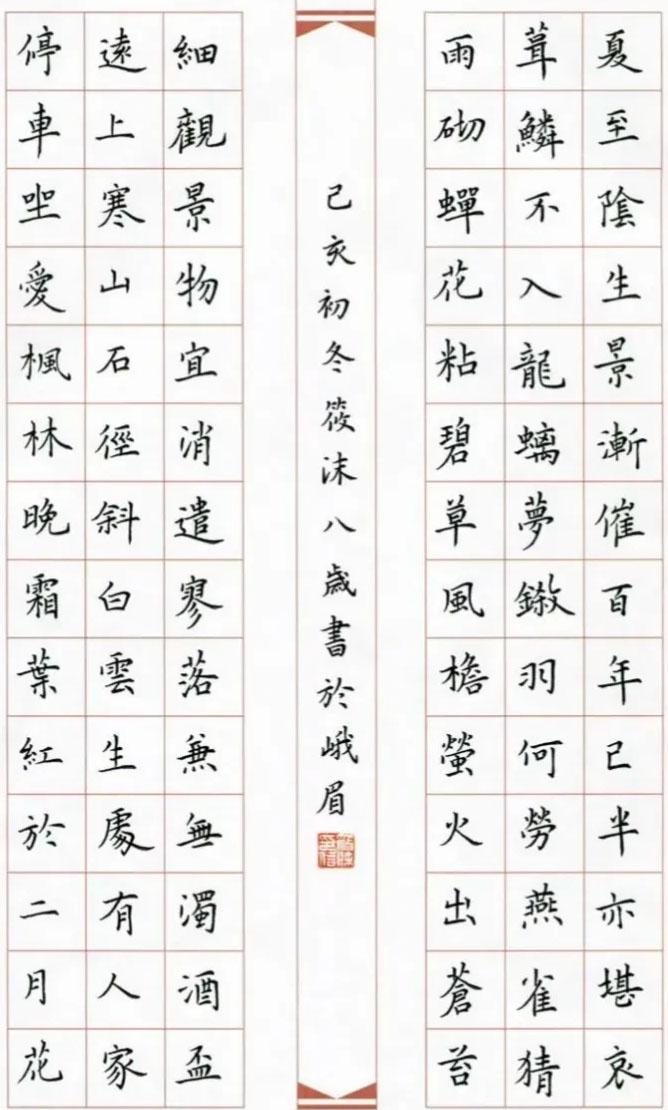 夏至陰生景漸催百年已半亦堪哀
葺鱗不入龍螭夢鎩羽何勞燕雀猜
雨砌蟬花粘碧草風檐螢火出蒼苔
細觀景物宜消遣寥落兼無濁酒盃
遠上寒山石徑斜白雲生處有人家
停車坐愛楓林晚霜葉紅於二月花
己亥初冬筱沫八歲書於峨眉